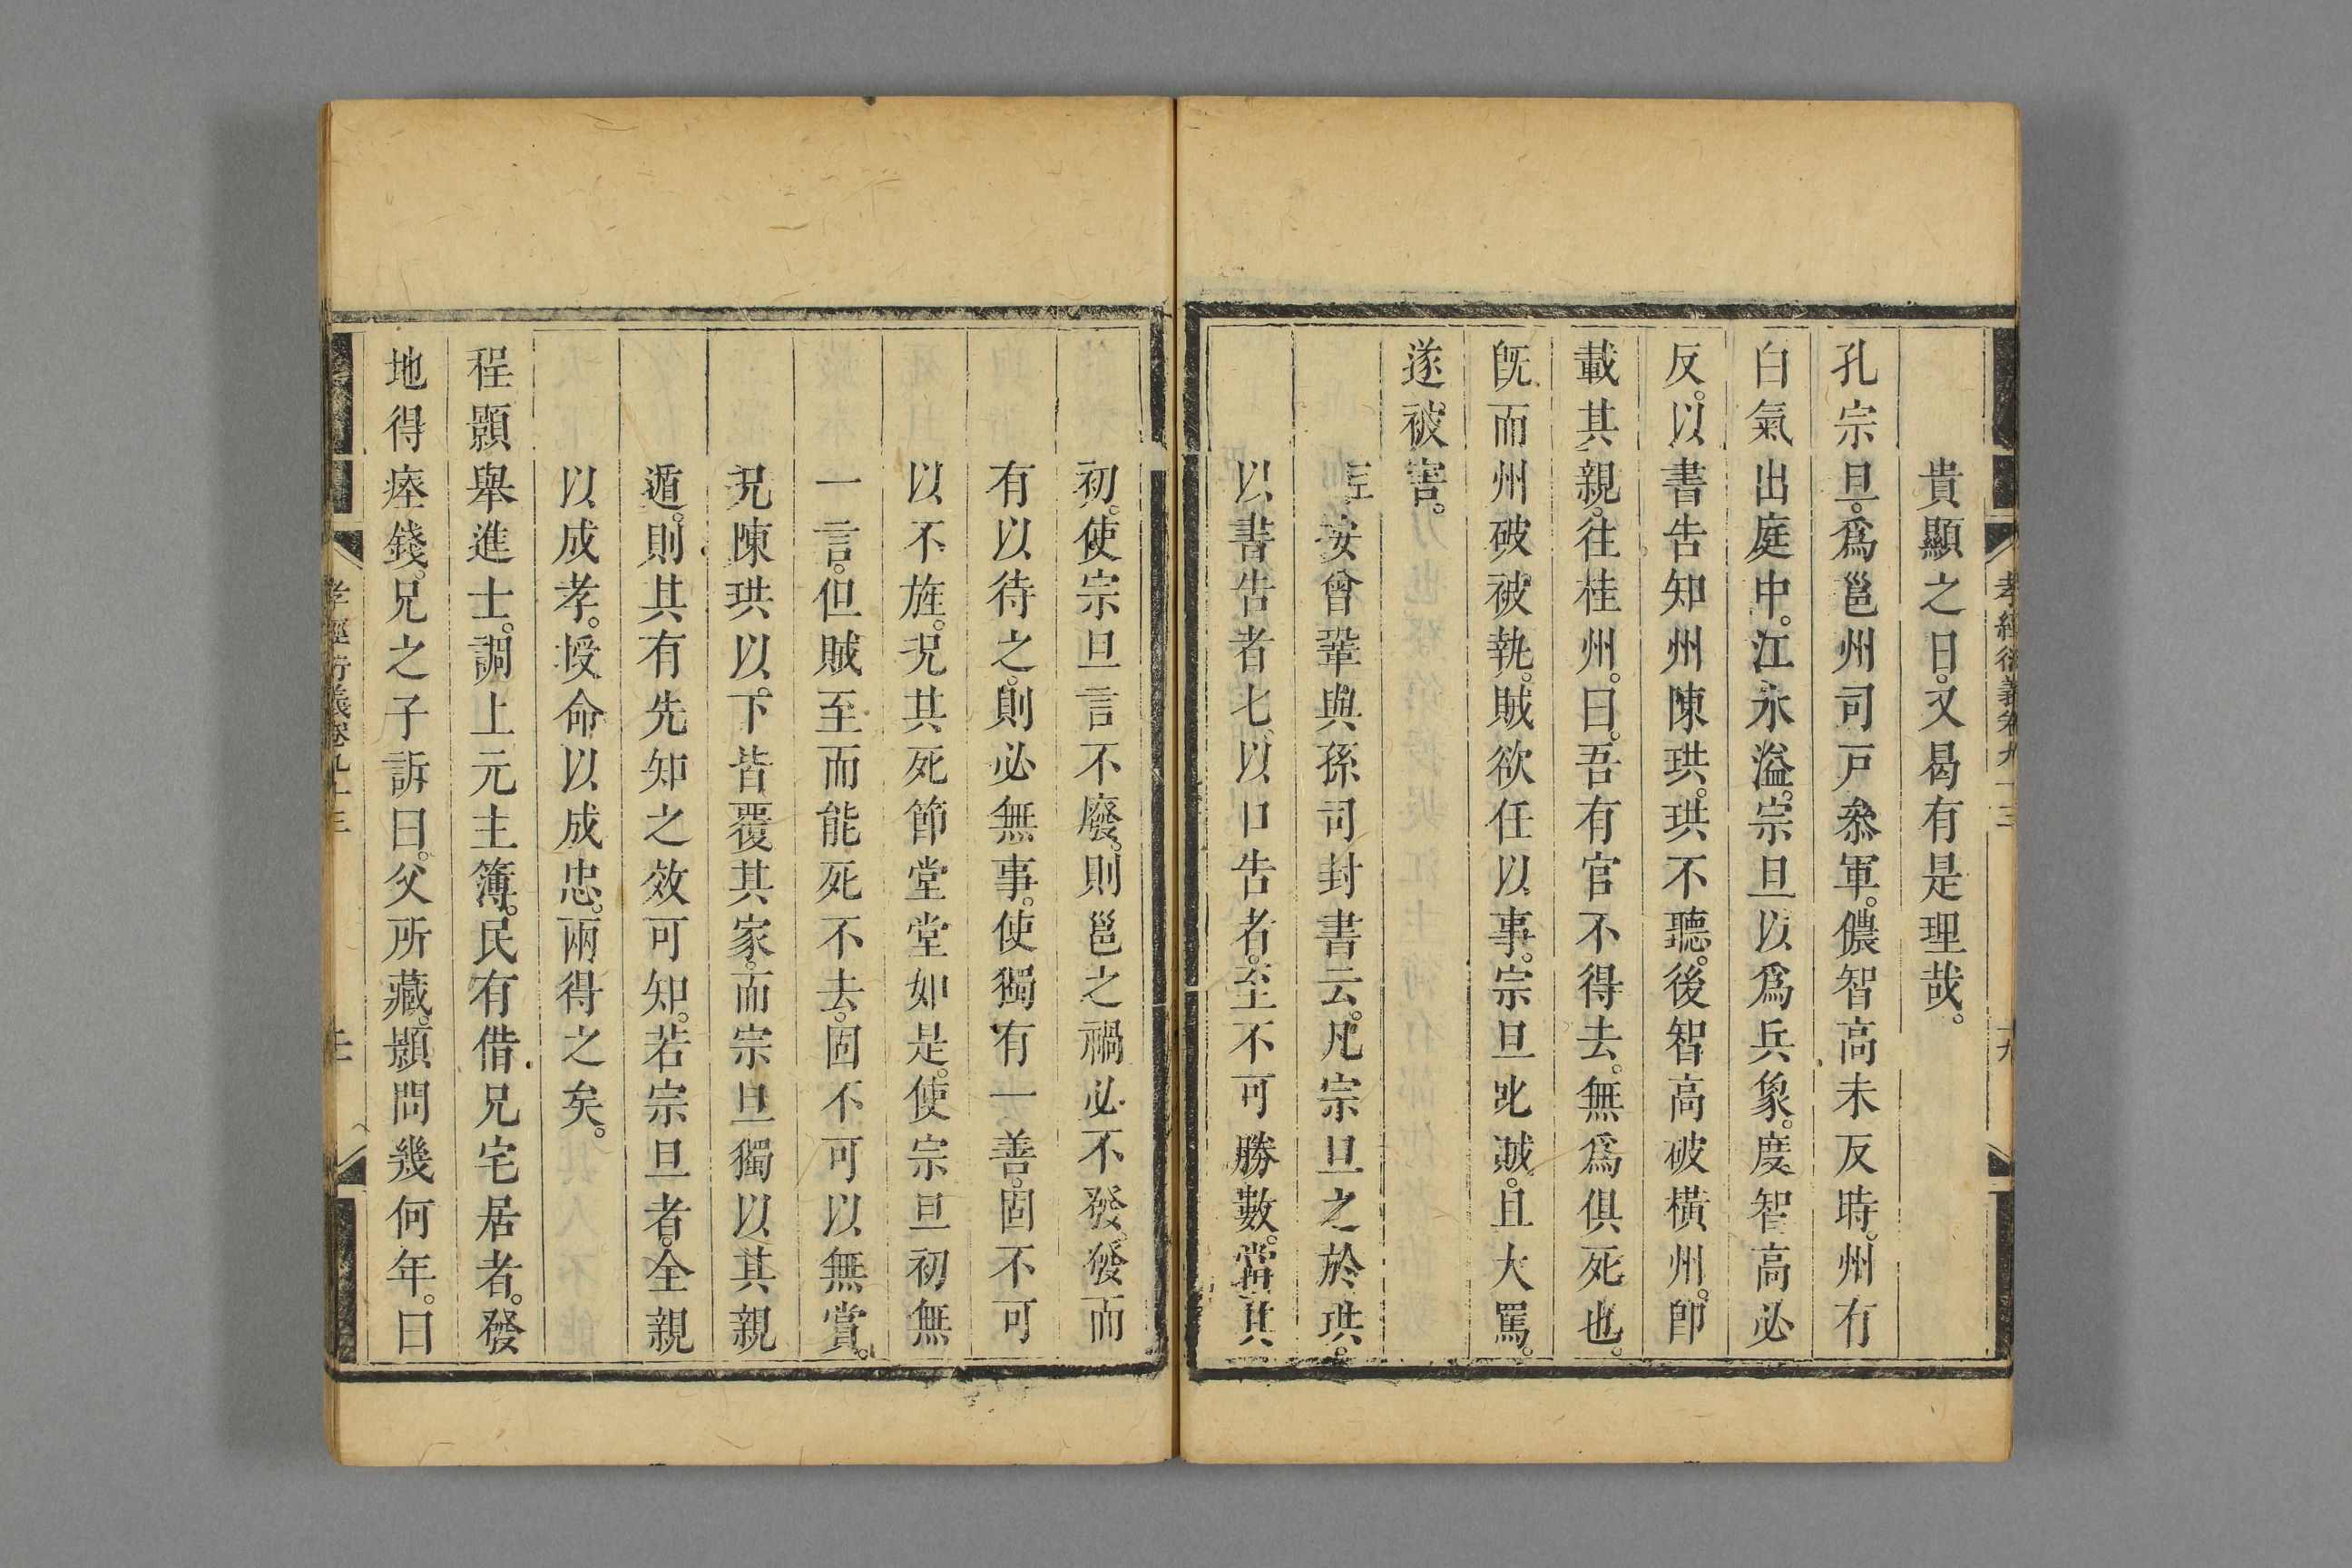 孝經衍義卷九十三
十九
貴顯之日。又曷有是理哉。
孔宗旦。爲邕州司戸叅軍。儂智高未反時。州有
白氣出庭中。江水溢。宗旦以爲兵象。度智高必
反。以書告知州陳珙。珙不聽。後智高破橫州。卽
載其親。往桂州。曰。吾有官不得去。無爲俱死也。
旣而州破被執。賊欲任以事。宗旦叱賊。且大罵。
遂被害。
臣按曾鞏與孫司封書云。凡宗旦之於珙。
以書告者七。以口告者。至不可勝數。當其
初。使宗旦言不廢。則邕之禍必不發。發而
有以待之。則必無事。使獨有一善。固不可
以不旌。况其死節堂堂如是。使宗旦初無
一言。但賊至而能死不去。固不可以無賞。
况陳珙以下皆覆其家。而宗旦獨以其親
遁。則其有先知之效可知。若宗旦者。全親
以成孝。授命以成忠。兩得之矣。
程顥舉進士。調上元主簿。民有借兄宅居者。發
地得瘞錢。兄之子訴曰。父所藏。顥問幾何年。曰
孝經衍義卷九十三